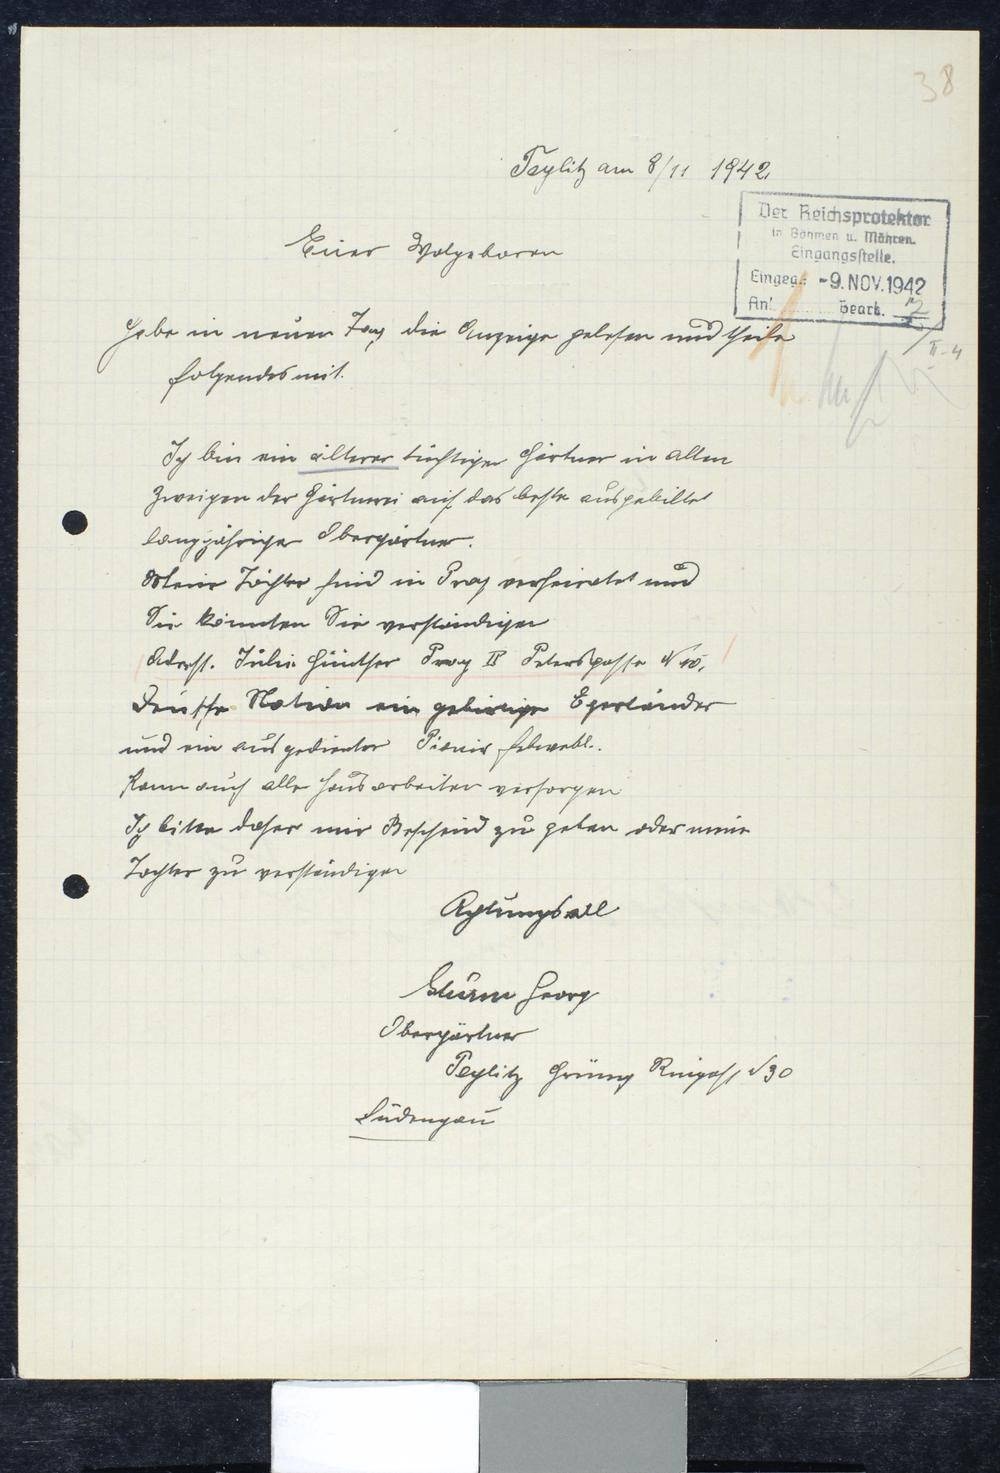 38
Teplitz am 8/11 1942.
Der Reichsprotektor
in Böhmen u. Mähren.
Eingangsstelle.
Eingeg.: -9. NOV. 1942
Anl. Bearb.
II-4
Euer Wolgeboren
Habe in neuen Tag die Anzeige gelesen und theile
folgendes mit.
Ich bin ein älterer tüchtiger Gärtner in allen
Zweigen der Gärtnerei auf das beste ausgebiltet
langjähriger Obergärtner.
Meine Töchter sind in Prag verheiratet und
Sie könnten Sie verständigen
Adresse. Julie Günther Prag II Petersgasse N 10,
Deutsche Nation ein gebürtiger Egerländer
und ein ausgedienter Pionir feldwebl.
Kann auch alle Hausarbeiten versorgen
Ich bitte daher mir Bescheid zu geben oder meine
Tochter zu verständigen
Achtungsvoll
Sturm Georg
Obergärtner
Teplitz Grüne Ringasse N 30
Sudengau